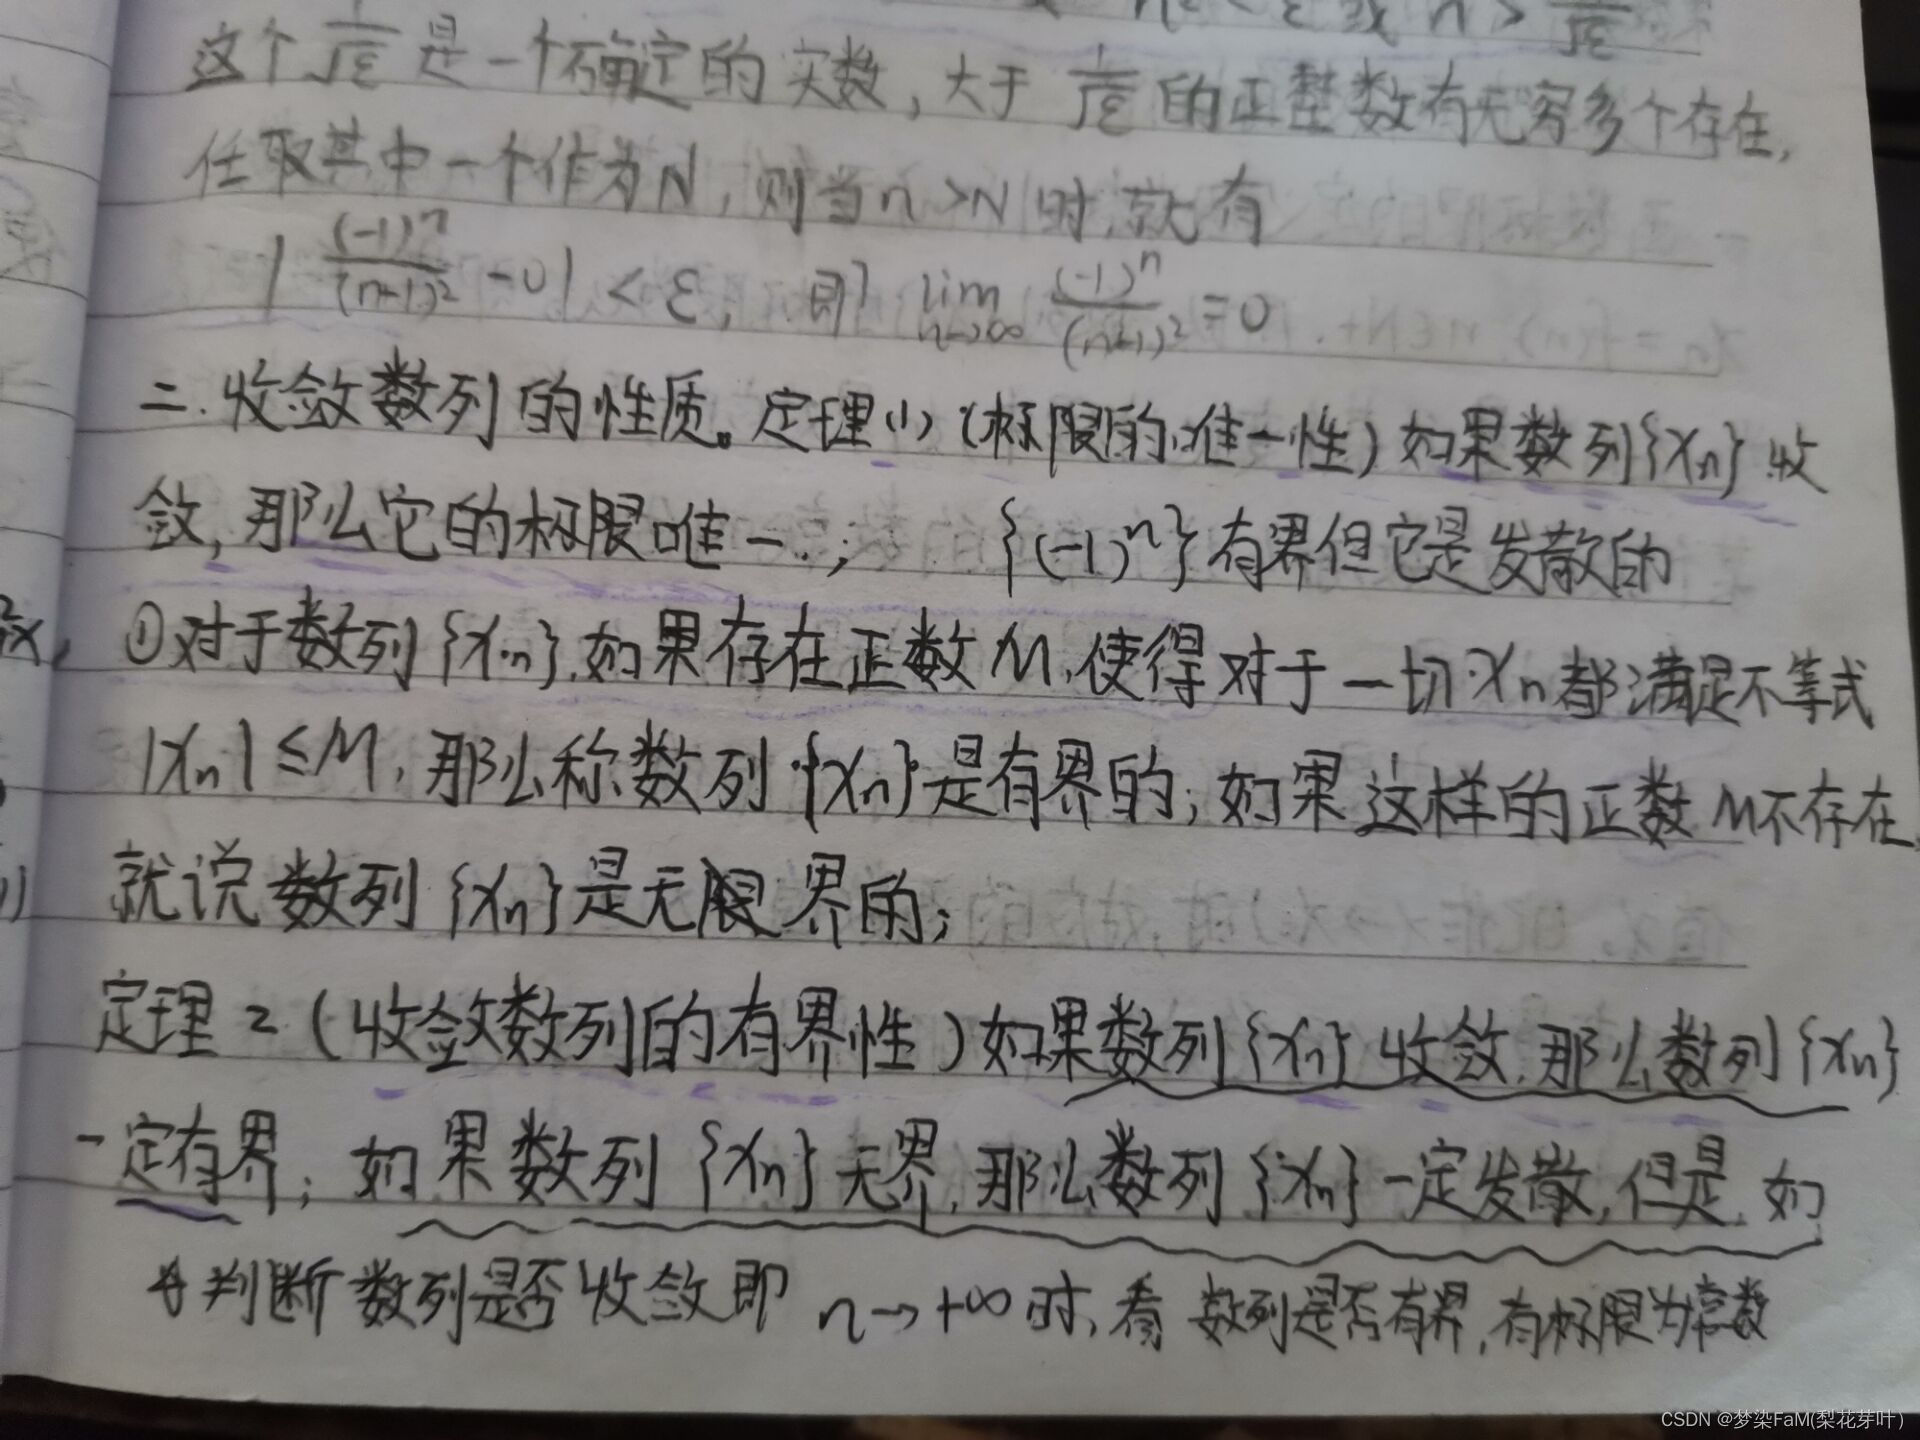 n² < ε 或 n > 1/√ε
这个 1/√ε 是一个确定的实数,大于 1/√ε 的正整数有无穷多个存在,
任取其中一个作为N,则当n>N时,就有
|(-1)ⁿ/(n+1)² - 0| < ε, 即 lim n→∞ (-1)ⁿ/(n+1)² = 0
二.收敛数列的性质。定理(1)(极限的唯一性)如果数列{xn}收
敛,那么它的极限唯一.; {(-1)ⁿ}有界但它是发散的
①对于数列{xn},如果存在正数M,使得对于一切xn都满足不等式
|xn|≤M,那么称数列{xn}是有界的;如果这样的正数M不存在,
就说数列{xn}是无界的;
定理2(收敛数列的有界性)如果数列{xn}收敛,那么数列{xn}
一定有界;如果数列{xn}无界,那么数列{xn}一定发散,但是,如
判断数列是否收敛即 n→+∞时,看 数列是否有界,有极限为常数
CSDN @梦染FaM(梨花芽叶)